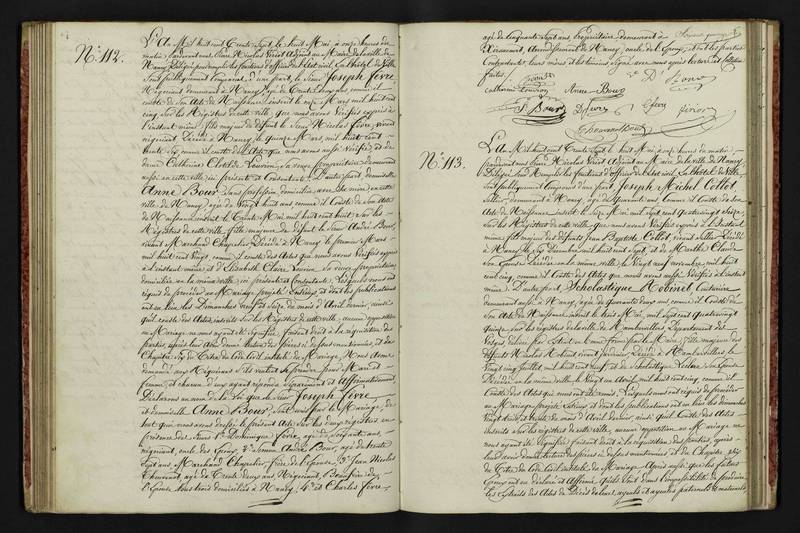 N.° 112.
L'An Mil huit cent Trente Sept, le huit Mai, à onze heures du
matin, pardevant nous Nicolas Voiart Adjoint au Maire de la ville de
Nancy, Délégué pour remplir les fonctions d'officier de l'état civil, à l'hôtel de Ville
Sont publiquement comparus, d'une part, le Sieur Joseph Fèvre,
Négociant demeurant à Nancy, âgé de Trente deux ans, comme il
conste de son Acte de Naissance inscrit le onze Mars mil huit cent
cinq, sur les Registres de cette ville, que nous avons vérifié exposés à
l'instant même, fils majeur de défunt le Sieur Nicolas Fèvre, vivant
négociant, Décédé à Nancy, le quinze Mars, mil huit cent
trente six, comme il conste de l'Acte que nous avons aussi vérifié et de
Dame Catherine Louviron, sa veuve propriétaire demeurant
aussi en cette ville, ici présente et Consentante; D'autre part, demoiselle
Anne Bour, sans profession, domiciliée avec sa mère, en cette
ville de Nancy, âgée de Vingt huit ans comme il Conste de son Acte
de Naissance inscrit le Trente Mai mil huit cent huit, sur les
Registres de cette ville, fille majeure de défunt le Sieur André Bour,
vivant Marchand Chapelier, Décédé à Nancy, le premier Mars
mil huit cent Vingt, comme il conste des Actes que nous avons vérifiés exposés
à l'instant même et d'Elisabeth Claire, sa veuve propriétaire
domiciliée en la même ville, ici présente et Consentante; Lesquels nous ont
requis de procéder au Mariage projeté Entr'eux et dont les publications
ont eu lieu les Dimanches neuf et Seize du mois d'Avril dernier, ainsi
qu'il conste des Actes, inscrits sur les Registres de cette ville, aucune opposition
au Mariage ne nous ayant été signifiée, faisant droit à la réquisition des
parties, après leur avoir donné lecture des pièces ci dessus mentionnées, et du
Chapitre six du Titre du Code Civil intitulé du Mariage, Nous Avons
demandé aux Requérans s'ils veulent se prendre pour Mari et
femme, et chacun d'eux ayant répondu séparément et affirmativement,
Déclarons au nom de la Loi que le Sieur Joseph Fèvre
et demoiselle Anne Bour, sont unis par le Mariage, de
tout quoi nous avons dressé le présent Acte sur les deux registres en
présence des Sieurs 1.° Dominique Fèvre, âgé de soixante ans,
négociant, oncle de l'Epoux, 2.° André Bour, âgé de trente
Sept ans, Marchand Chapelier, frère de l'Epouse, 3.° Jean Nicolas
Thouvenot, âgé de Trente deux ans, Négociant, Beau frère de
l'Epouse, tous trois domiciliés à Nancy, 4.° et Charles Fèvre,
âgé de Cinquante sept ans, Propriétaire demeurant à
Arrondissement de Nancy, oncle de l'Epoux, et ont les parties
Contractantes, leurs mères et les témoins signé avec nous après lecture
faite.
Catherine Louviron Anne Bour
J. Bour D. Fevre Fevre
Thouvenot
N.° 113.
L'An Mil huit cent Trente Sept, le huit Mai, à onze heures du matin,
pardevant nous Nicolas Voiart Adjoint au Maire de la ville de Nancy,
Délégué pour Remplir les fonctions d'officier de l'état civil, à l'hôtel de Ville,
Sont publiquement Comparus d'une part, Joseph Michel Collot,
Sellier, demeurant à Nancy, âgé de quarante ans, comme il Conste de son
Acte de Naissance inscrit le Seize Mai, mil sept cent quatre vingt seize,
sur les Registres de cette ville, que nous avons vérifié exposés à l'instant
même, fils majeur des défunts Jean Baptiste Collot, vivant Sellier, Décédé
à Nancy, le Dix mil huit cent et de Marthe Claudon
son Epouse, Décédée en la même ville, le Vingt neuf novembre, mil huit
cent cinq, comme il Conste des Actes que nous avons aussi vérifiés à l'instant
même; D'autre part, Scholastique Hobinet, Couturière,
demeurant aussi à Nancy, âgée de quarante deux ans, comme il Conste de
son Acte de Naissance inscrit le trois Mai, mil sept cent quatre vingt
quinze sur les registres de la ville de Rambervillers Département des
Vosges, fille majeure des
défunts Nicolas Hobinet, vivant Décédé à Rambervillers, le
Vingt Juillet, mil huit cent neuf, et de Scholastique Leclerc, son Epouse,
Décédée en la même ville, le Vingt un Avril, mil huit cent cinq, comme il
Conste des Actes que nous avons Lesquels nous ont requis de procéder
au Mariage projeté Entr'eux et dont les publications ont eu lieu les dimanches
Vingt trois et trente du mois d'Avril dernier, ainsi qu'il Conste des Actes
inscrits sur les Registres de cette ville, aucune opposition au Mariage ne
nous ayant été signifiée, faisant droit à la réquisition des parties, après
leur avoir donné lecture des pièces ci dessus mentionnées et du Chapitre six
du Titre du Code Civil, intitulé du Mariage, Après aussi que les futurs
Epoux ont eu déclaré et Affirmé qu'ils sont dans l'impossibilité de produire
les extraits des Actes de Décès de leurs ayeuls et ayeules paternels et maternels,